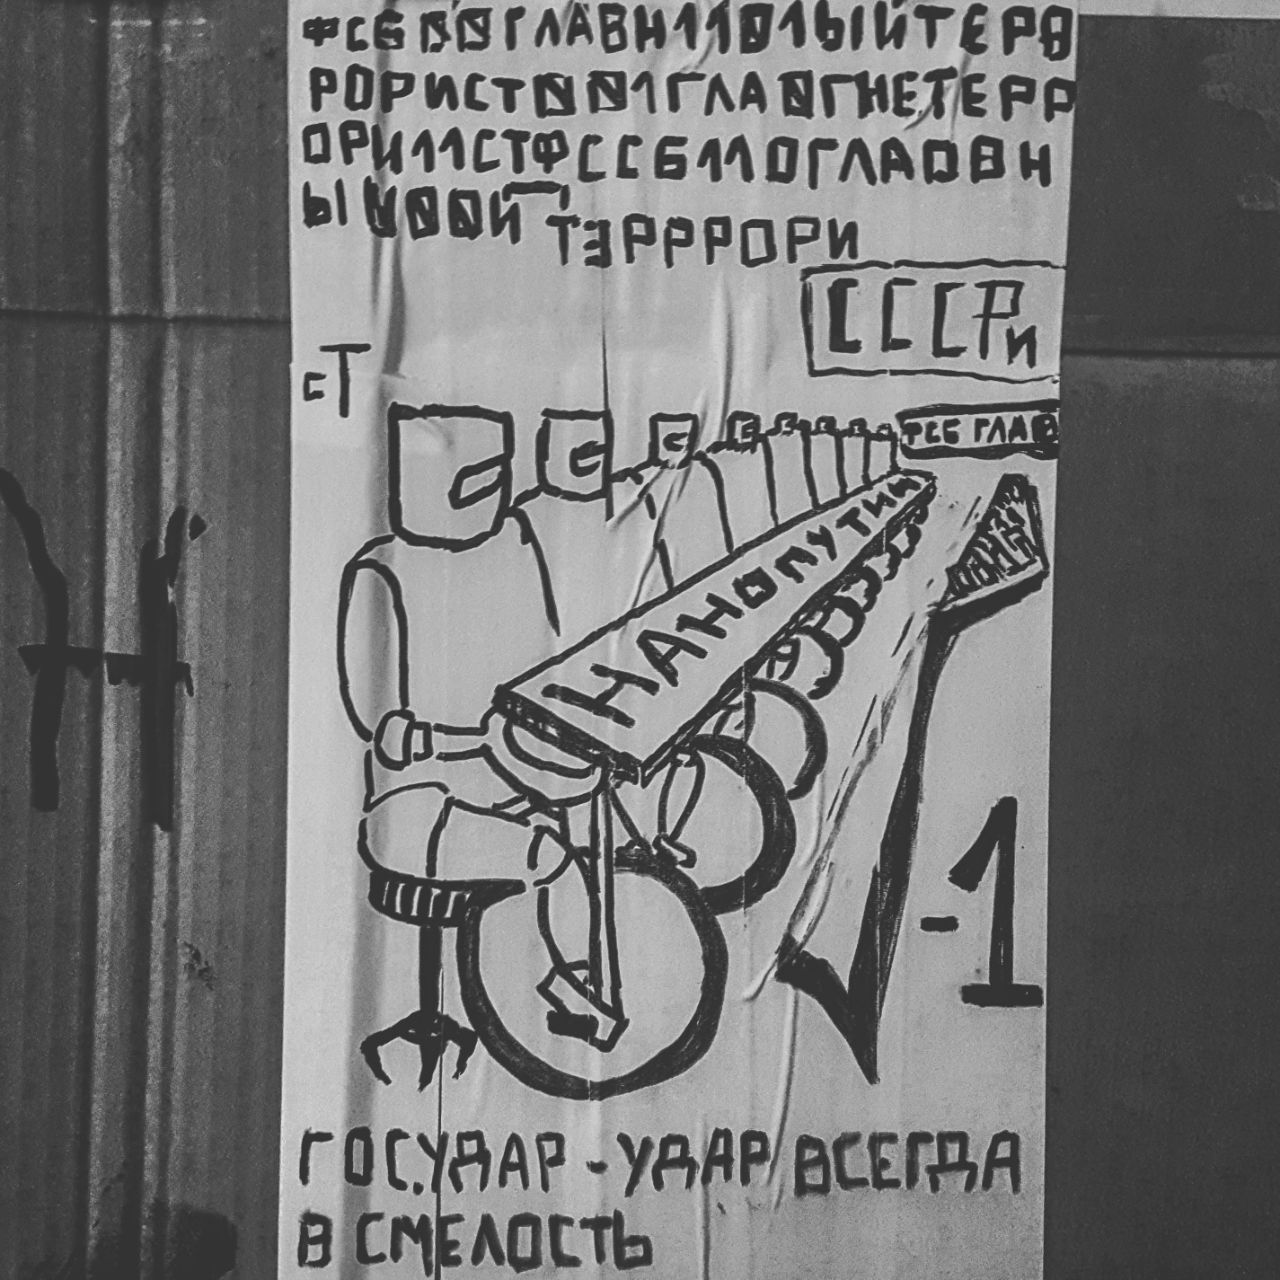 ФСБ00ГЛАВН11010ЫЙТЕР0
РОРИСТ001ГЛА0ГНЕТЕРР
ОРИ11СТФССБ110ГЛАОВН
ЫЙ00Й ТЭРРРОРИ
СССРи
сТ
ФСБ ГЛАВ
НАНОПУТИН
√-1
ГОСУДАР-УДАР ВСЕГДА
В СМЕЛОСТЬ